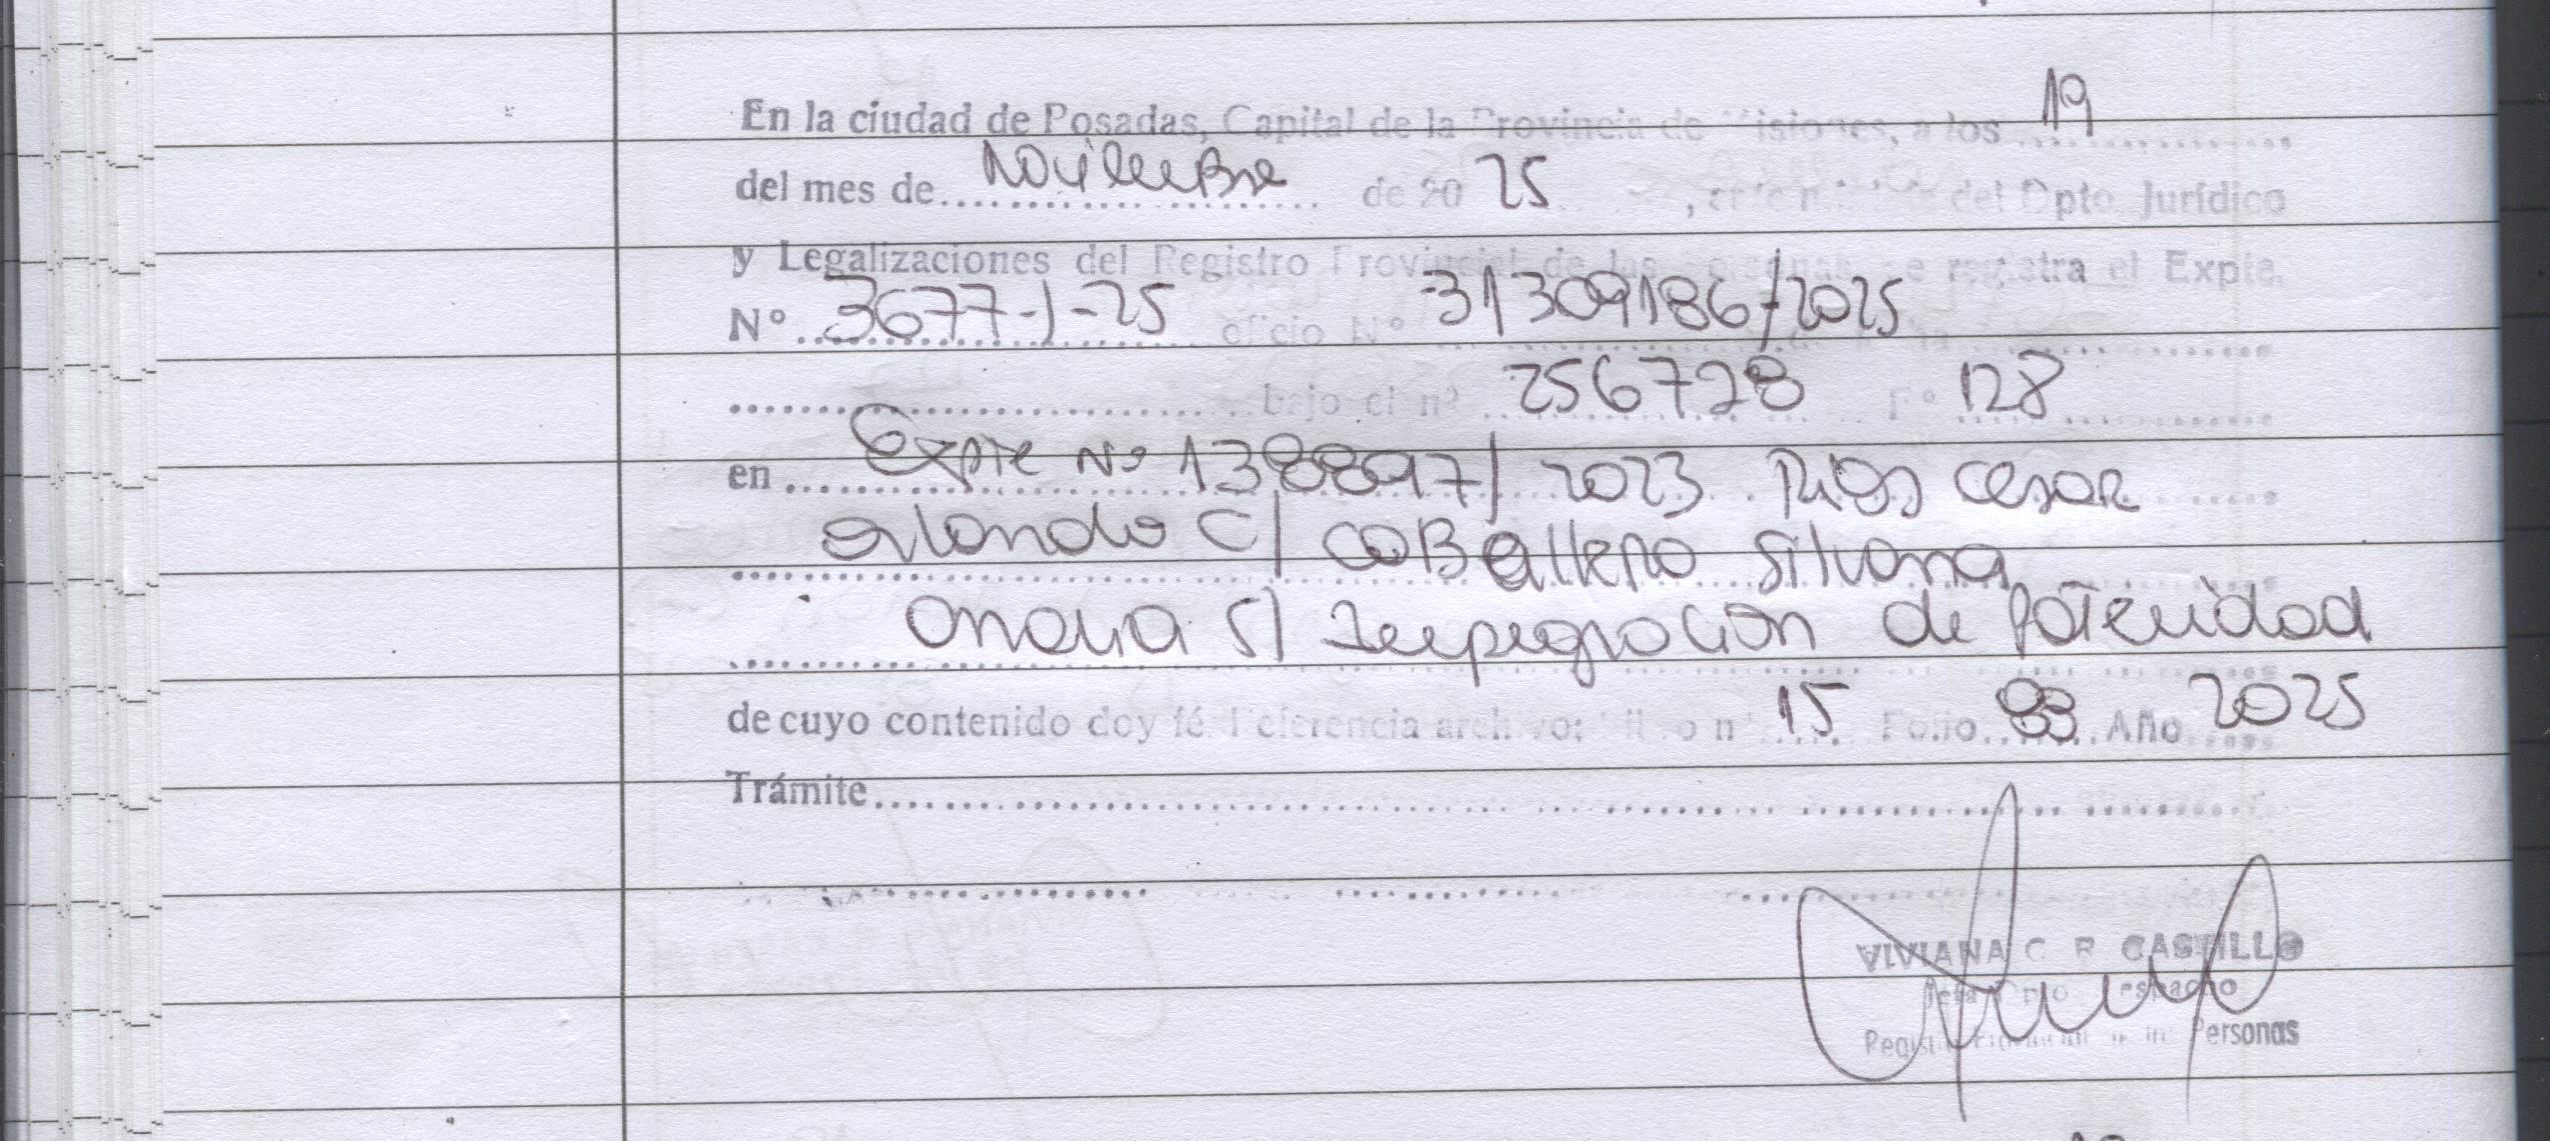 En la ciudad de Posadas, Capital de la Provincia de Misiones, a los 19
del mes de Noviembre de 20 25, del Dpto. Jurídico
y Legalizaciones del Registro Provincial de las Personas se registra el Expte.
Nº 3677-J-25 oficio Nº 31309186/2025
bajo el nº 256728 Fº 128
en Expte Nº 138897/2023 Rios Cesar
Orlando C/ CaBallero Silvana
Analia S/ Impugnacion de Paternidad
de cuyo contenido doy fé. Referencia archivo: nº 15 Folio 83 Año 2025
Trámite
VIVIANA C. R. CASTILLO
Jefa Dpto. Despacho
Registro Provincial de las Personas